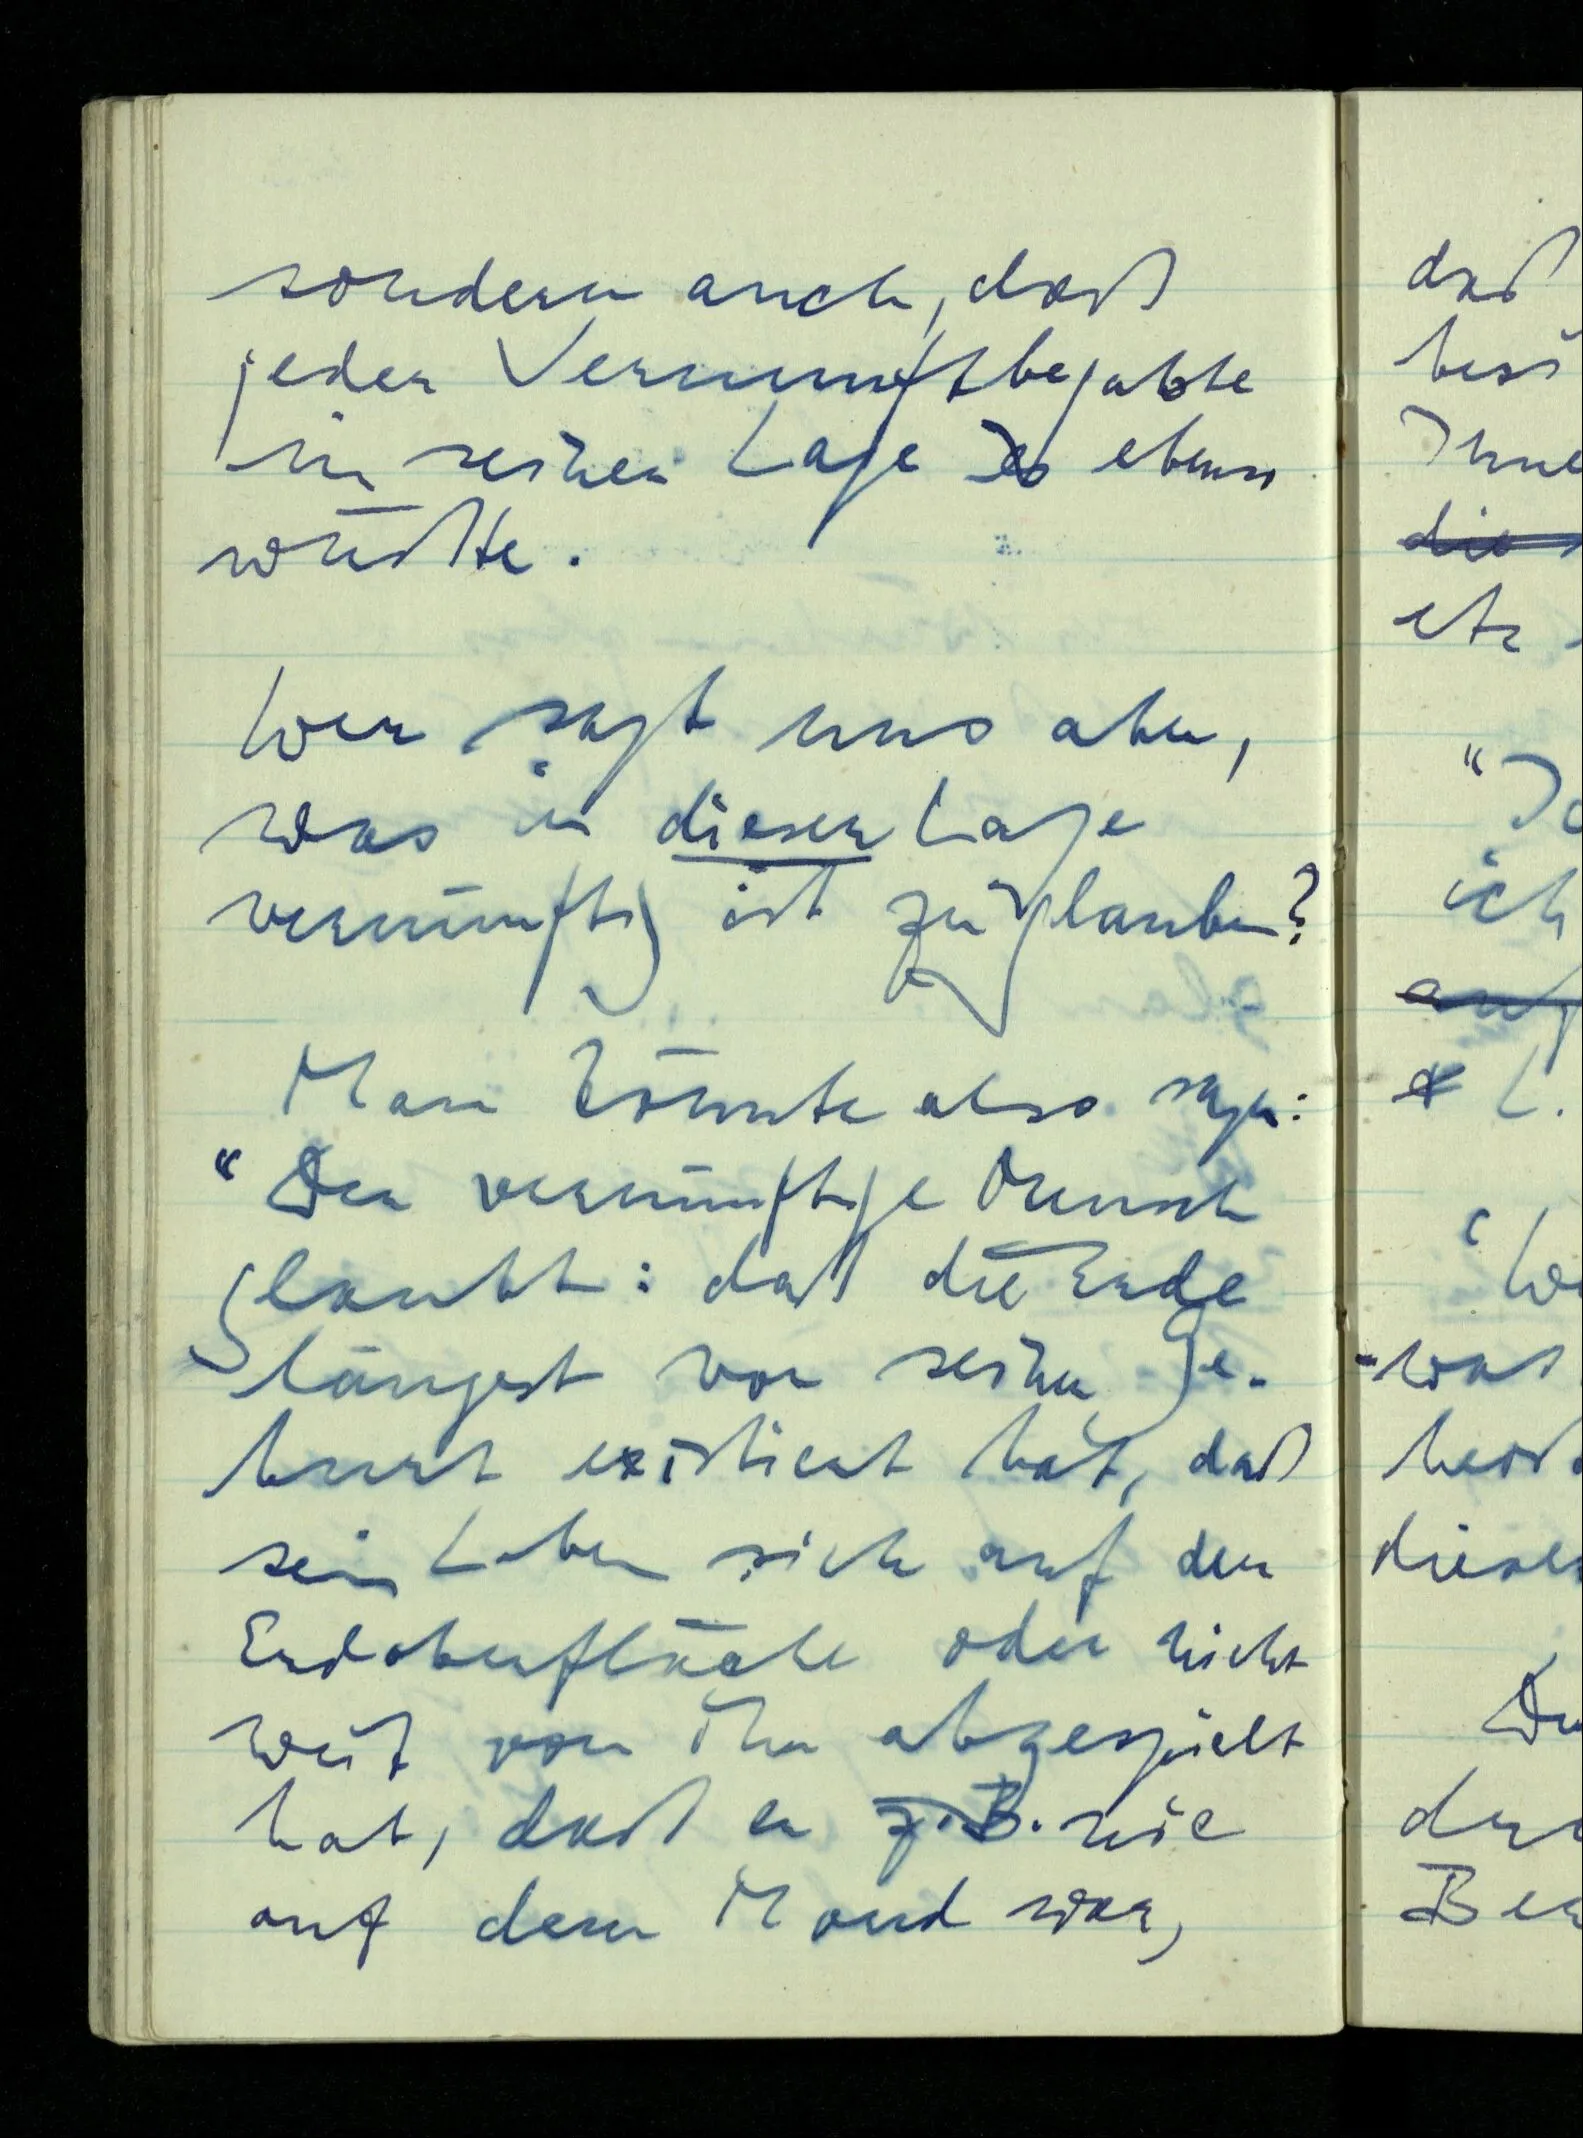 sondern auch, daß
jeder Vernunftbegabte
in seiner Lage es ebenso
wüßte.
Wer sagt uns aber,
was in dieser Lage
vernünftig ist zu glauben?
Man könnte also sagen:
"Der vernünftige Mensch
glaubt: daß die Erde
längst vor seiner Ge-
burt existiert hat, daß
sein Leben sich auf der
Erdoberfläche oder nicht
weit von ihr abgespielt
hat, daß er z.B. nie
auf dem Mond war,
daß
etc
"
ich
auf
L.
was